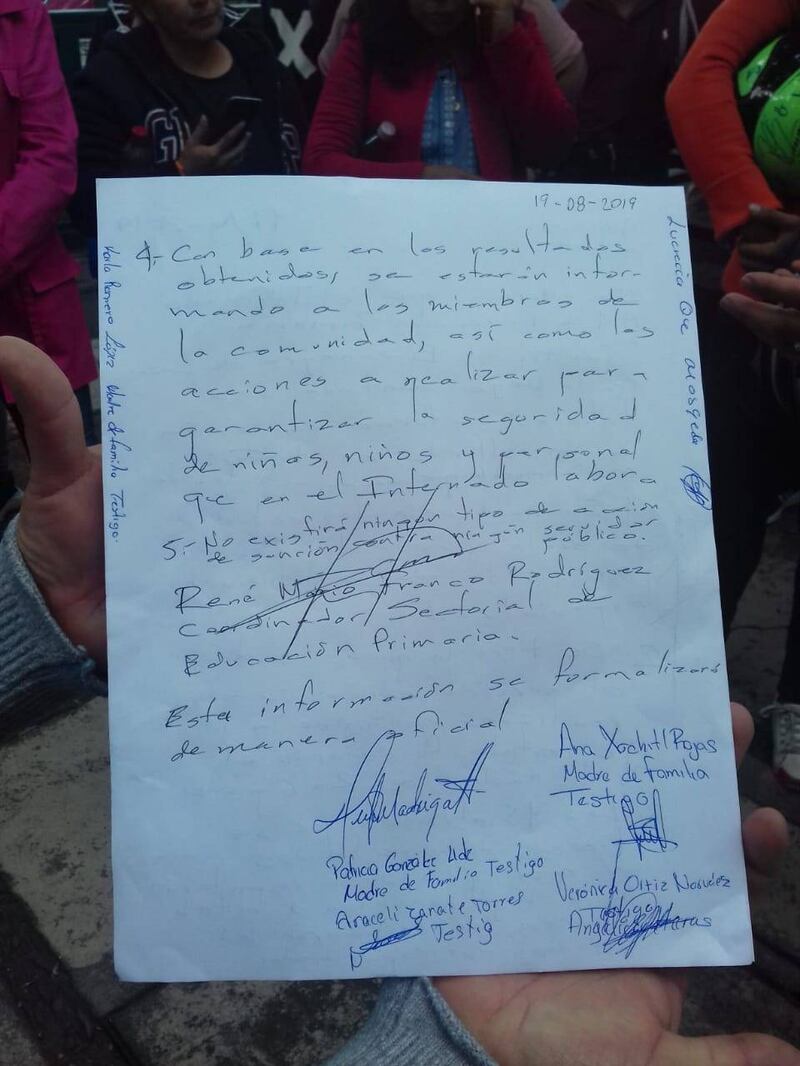 19-08-2019
4.- Con base en los resultados
obtenidos, se estarán infor-
mando a los miembros de
la comunidad, así como las
acciones a realizar para
garantizar la seguridad
de niñas, niños y personal
que en el Internado labora
5.- No existirá ningún tipo de acción
de sanción contra ningún servidor
público.
René Mario Franco Rodríguez
Coordinador Sectorial de
Educación Primaria.
Esta información se formalizará
de manera oficial
Ana Xochitl Rojas
Madre de familia
Testigo
Madrigal
Patricia González
Madre de Familia Testigo
Araceli Zarate Torres
Testig
Verónica Ortiz
Testigo
Karla Romero López Madre de familia Testigo.
Lucrecia
X
G